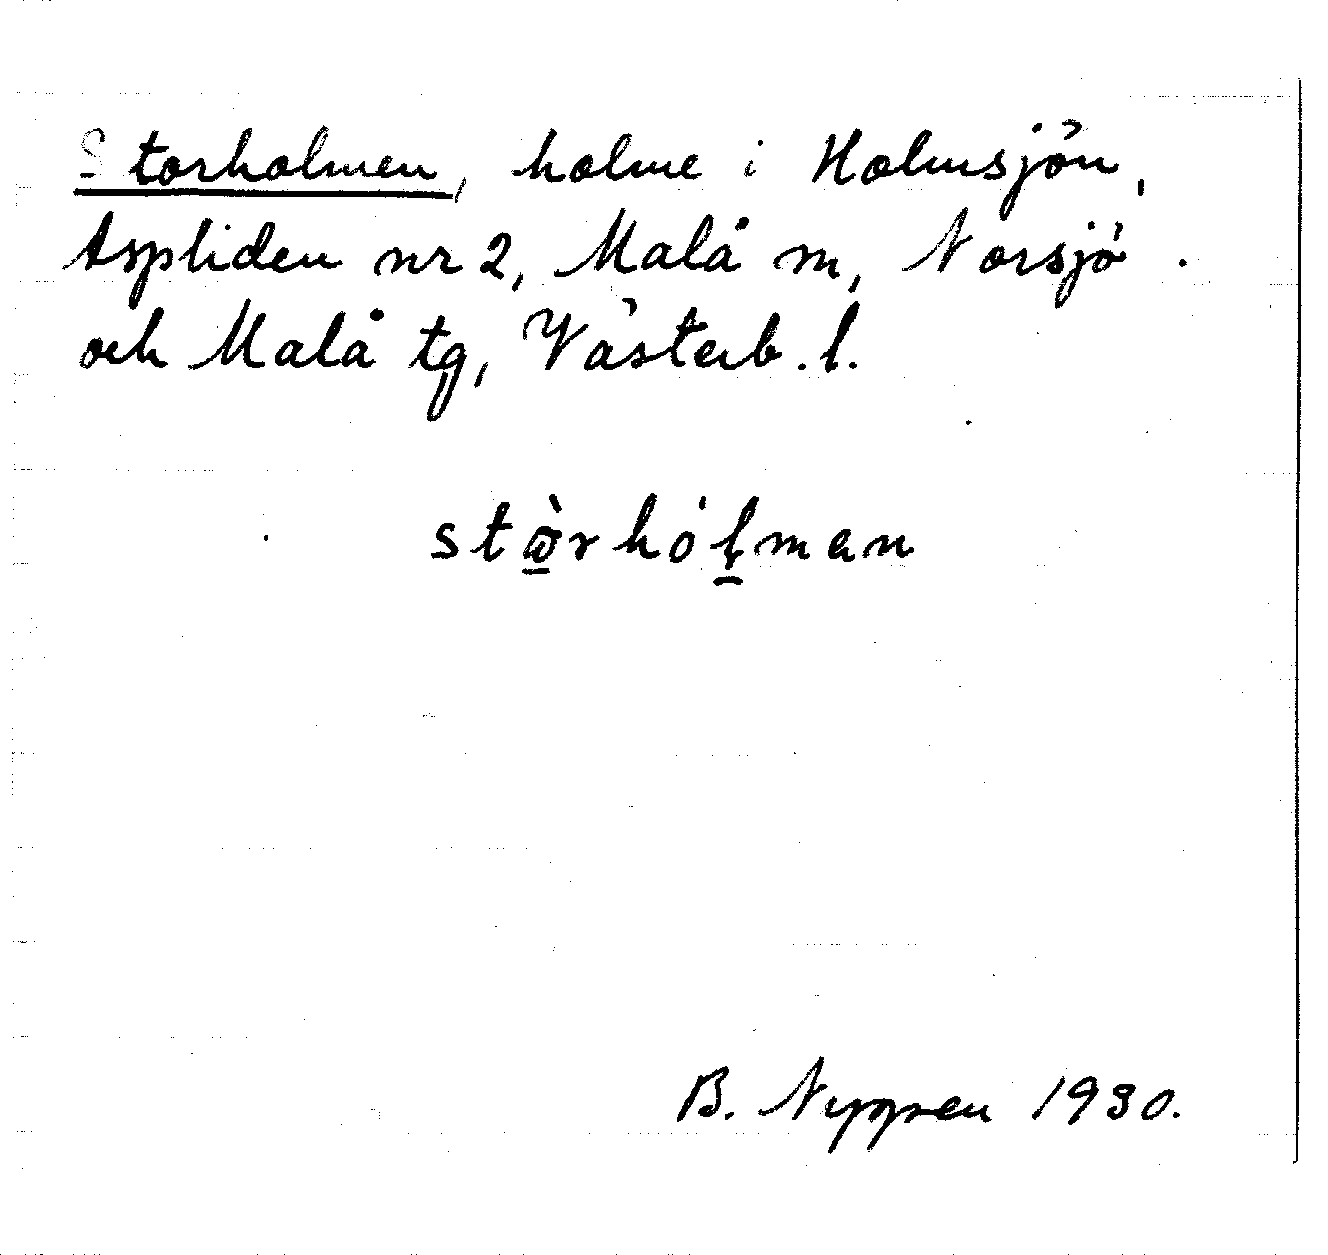 Storholmen, holme i Holmsjön,
Aspliden nr 2, Malå m, Norsjö
och Malå tg, Västerb. l.
stὼ̲rhół̲man
B. Nygren 1930.